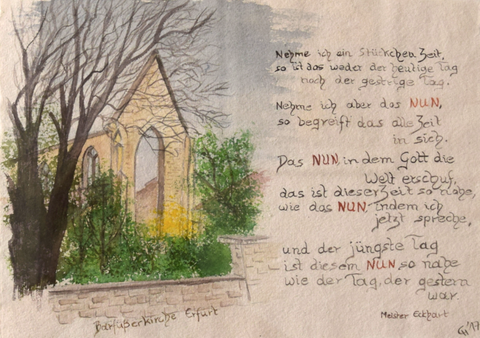 Nehme ich ein Stückchen Zeit,
so ist das weder der heutige Tag
noch der gestrige Tag.
Nehme ich aber das NUN,
so begreift das alle Zeit
in sich.
Das NUN, in dem Gott die
Welt erschuf,
das ist dieser Zeit so nahe,
wie das NUN, indem ich
jetzt spreche,
und der jüngste Tag
ist diesem NUN, so nahe
wie der Tag, der gestern
war.
Meister Eckhart
Barfüßerkirche Erfurt